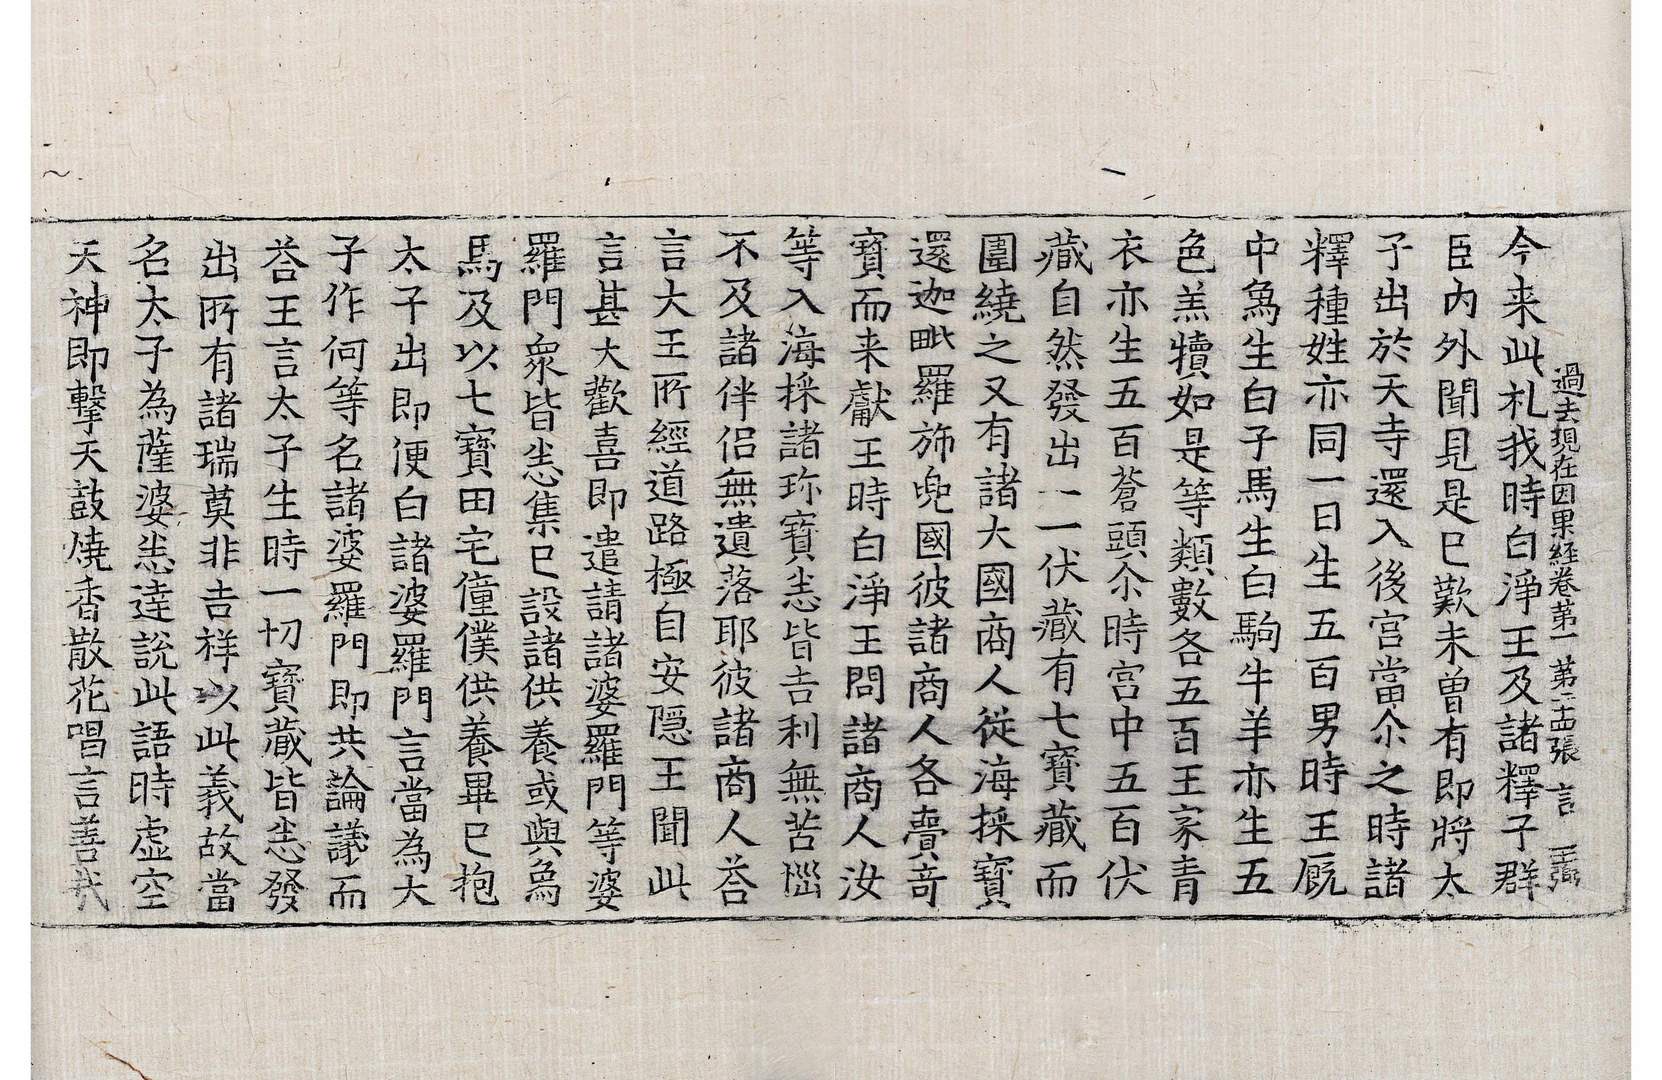 過去現在因果経卷第一 第二十四張 言
今来此札我時白淨王及諸釋子群
臣內外聞見是已歎未曾有即將太
子出於天寺還入後宮當尒之時諸
釋種姓亦同一日生五百男時王厩
中象生白子馬生白駒牛羊亦生五
色羔犢如是等類數各五百王家青
衣亦生五百蒼頭尒時宮中五百伏
藏自然發出一一伏藏有七寶藏而
圍繞之又有諸大國商人從海採寶
還迦毗羅斾兜國彼諸商人各賷奇
寶而来獻王時白淨王問諸商人汝
等入海採諸珎寶悉皆吉利無苦惱
不及諸伴侶無遺落耶彼諸商人荅
言大王所經道路極自安隱王聞此
言甚大歡喜即遣請諸婆羅門等婆
羅門衆皆悉集已設諸供養或與象
馬及以七寶田宅僮僕供養畢已抱
太子出即便白諸婆羅門言當為太
子作何等名諸婆羅門即共論議而
荅王言太子生時一切寶藏皆悉發
出所有諸瑞莫非吉祥以此義故當
名太子為薩婆悉達說此語時虛空
天神即擊天鼓燒香散花唱言善哉